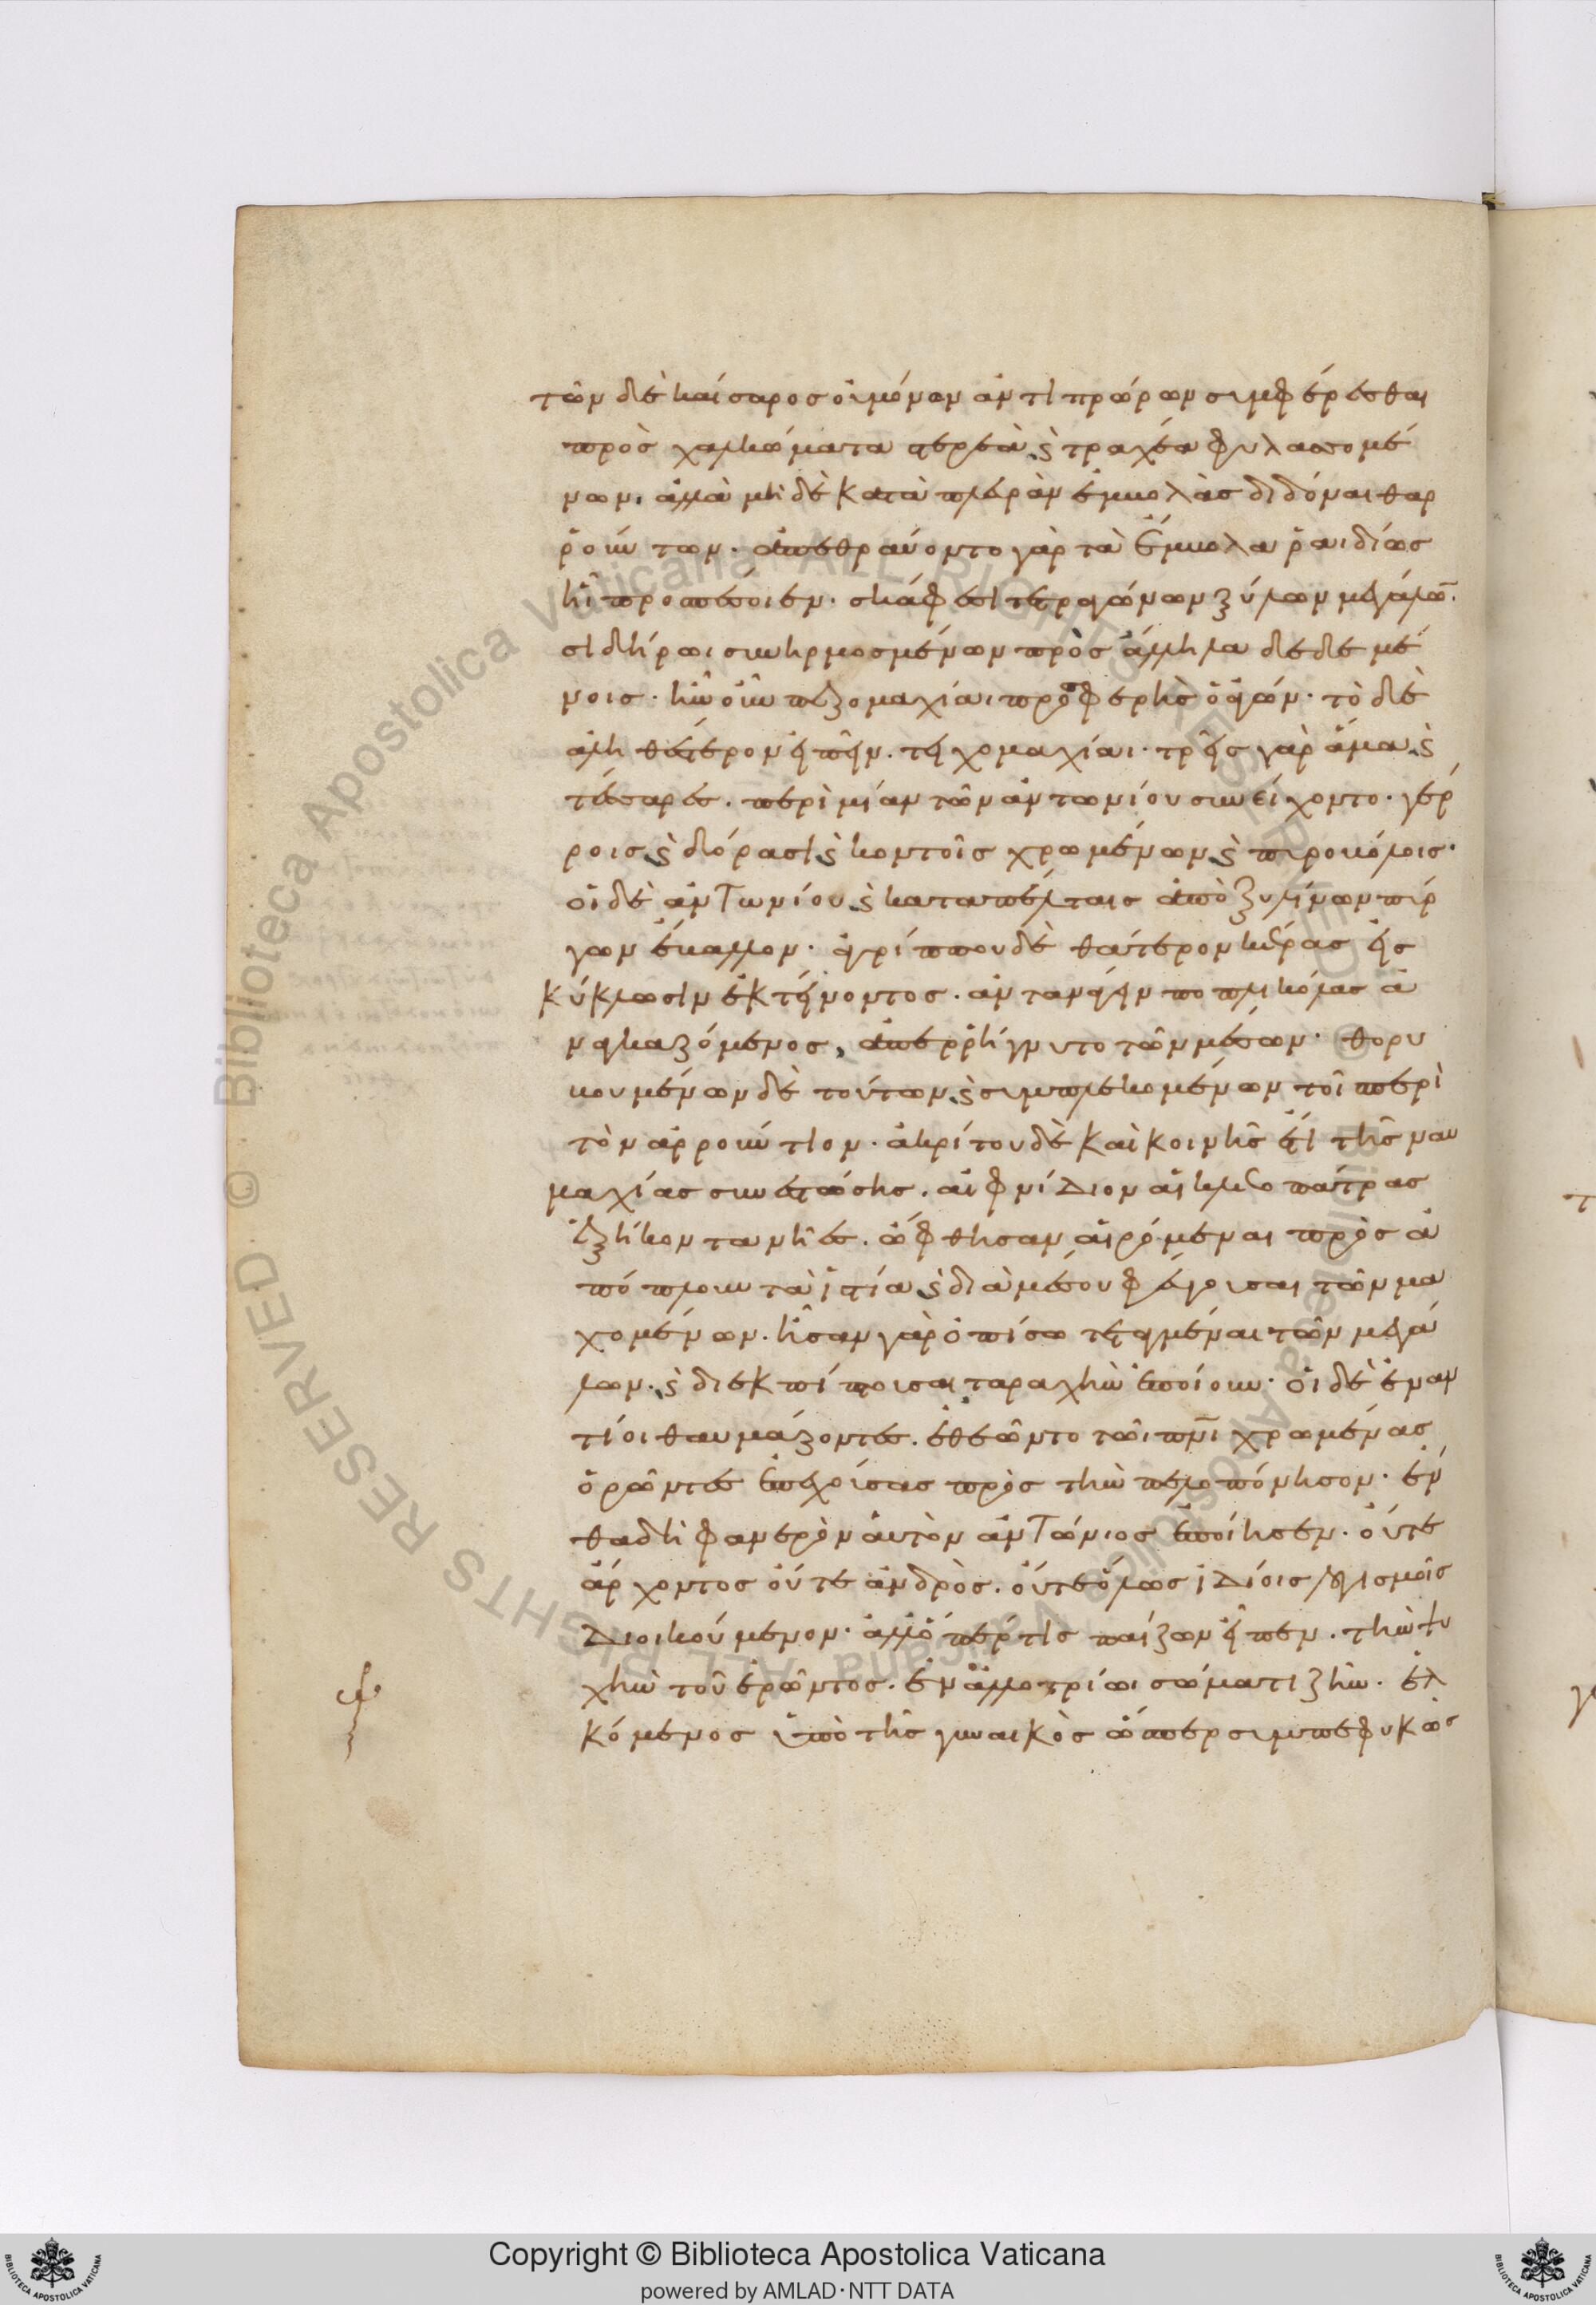 τῶν δὲ καίσαρος οὐ μόνον ἀντιπρώρων συμφέρεσθαι
πρὸς χαλκώματα στερεὰ καὶ τραχέα φυλασσομέ
νων, ἀλλὰ μὴ δὲ κατὰ πλευρὰν ἐμβολὰς διδόναι θαρ
ρούντων. ἀπεθραύοντο γὰρ τὰ ἔμβολα ῥαιδίως
ἧι προσπέσοιεν. σκάφεσι τετραγώνων ξύλων μεγάλων.
σιδήρωι συνηρμοσμένων πρὸς ἄλληλα δεδεμέ
νοις. ἦν οὖν πεζομαχίαι προσφερὴς ὁ ἀγών. τὸ δὲ
ἀληθέστερον εἰπεῖν. τειχομαχίαι. τρεῖς γὰρ ἅμα καὶ
τέσσαρες. περὶ μίαν τῶν ἀντωνίου συνείχοντο. γέρ
ροις καὶ δόρασι καὶ κοντοῖς χρωμένων καὶ πυροβόλοις.
οἱ δὲ ἀντωνίου καὶ καταπέλταις ἀπὸ ξυλίνων πύρ
γων ἔβαλλον. ἀγρίππου δὲ θάτερον κέρας εἰς
κύκλωσιν ἐκτείνοντος. ἀντανάγειν ποπλικόλας ἀ
ναγκαζόμενος, ἀπερρήγνυτο τῶν μέσων. θορυ
βουμένων δὲ τούτων καὶ συμπλεκομένων τοῖ περὶ
τὸν ἀρρούντιον. ἀκρίτου δὲ καὶ κοινῆς ἔτι τῆς ναυ
μαχίας συνεστώσης. αἰφνίδιον αἱ κλεοπάτρας
ἑξήκοντα νῆες. ὤφθησαν αἰρόμεναι πρὸς ἀ
πόπλουν τὰ ἱστία καὶ διὰ μέσου φεύγουσαι τῶν μα
χομένων. ἦσαν γὰρ ὀπίσω τεταγμέναι τῶν μεγά
λων. καὶ διεκπίπτουσαι ταραχὴν ἐποίουν. οἱ δὲ ἐναν
τίοι θαυμάζοντες. ἐθεῶντο τῶι πνι χρωμένας
ὁρῶντες ἐπεχούσας πρὸς τὴν πελοπόννησον. ἐν
θα δὴ φανερὸν αὑτὸν ἀντώνιος ἐποίησεν. οὔτε
ἄρχοντος οὔτε ἀνδρὸς. οὔτε ὅλως ἰδίοις λογισμοῖς
διοικούμενον. ἀλλ᾽ ὅπέρ τις παίζων εἶπεν. τὴν ψυ
χὴν τοῦ ἐρῶντος. ἐν ἀλλοτρίωι σώματι ζῆν. ἑλ
κόμενος ὑπὸ τῆς γυναικὸς ὥσπερ συμπεφυκὼς
Copyright © Biblioteca Apostolica Vaticana
powered by AMLAD·NTT DATA